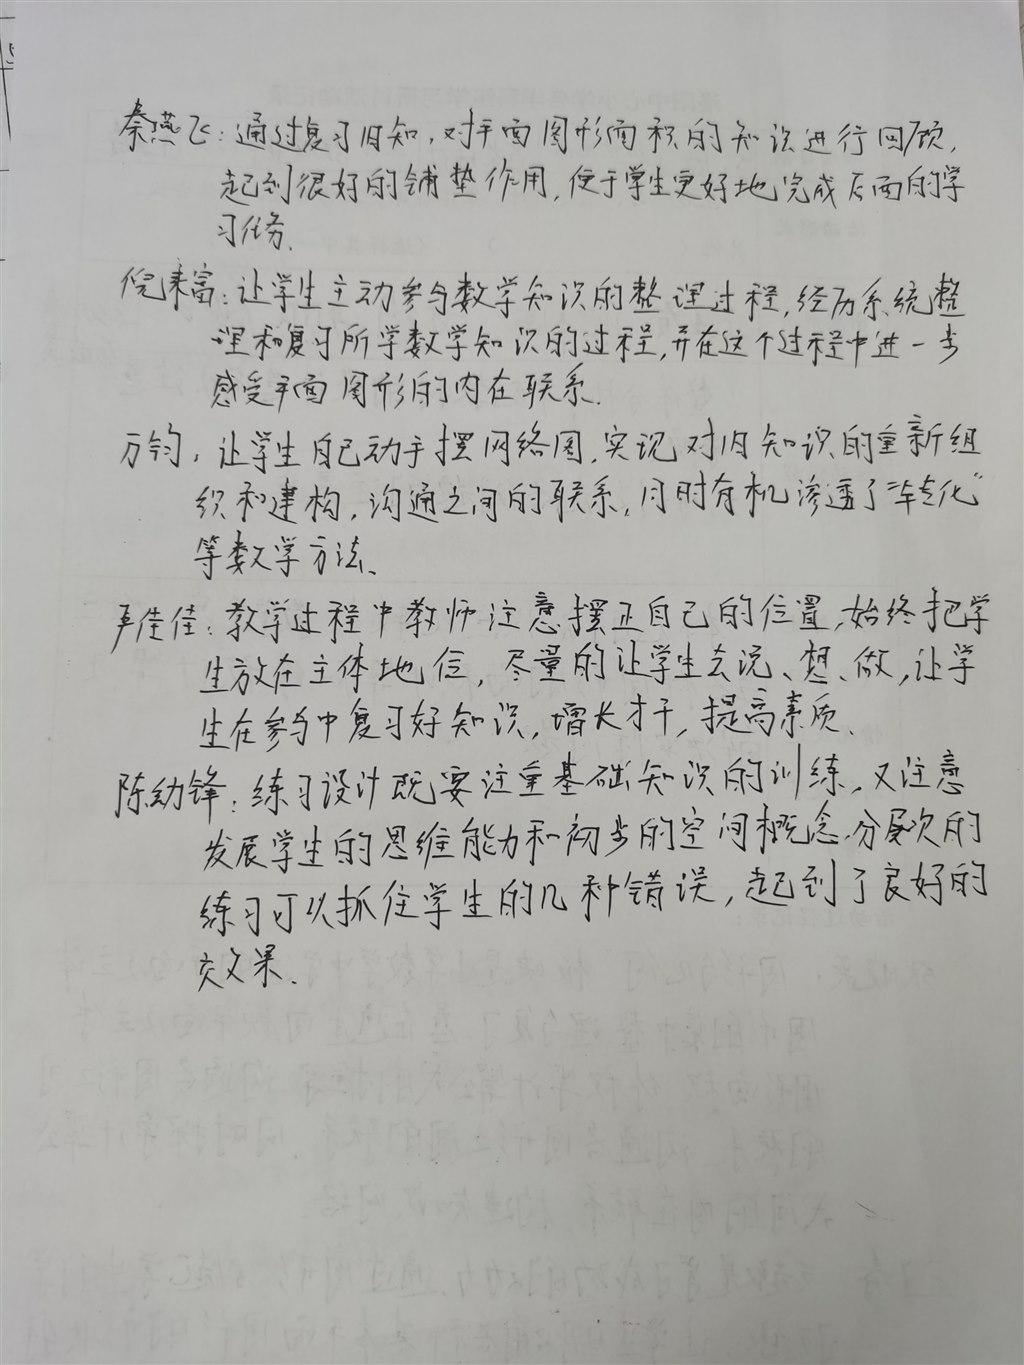 秦燕飞：通过复习旧知，对平面图形面积的知识进行回顾，
起到很好的铺垫作用，便于学生更好地完成后面的学
习任务.
倪来富：让学生主动参与数学知识的整理过程，经历系统整
理和复习所学数学知识的过程，并在这个过程中进一步
感受平面图形的内在联系.
万钧：让学生自己动手摆网络图，实现对旧知识的重新组
织和建构，沟通之间的联系，同时有机渗透了“转化”
等数学方法、
严佳佳：教学过程中教师注意摆正自己的位置，始终把学
生放在主体地位，尽量的让学生去说、想、做，让学
生在参与中复习好知识，增长才干，提高素质、
陈幼锋：练习设计既要注重基础知识的训练，又注意
发展学生的思维能力和初步的空间概念，分层次的
练习可以抓住学生的几种错误，起到了良好的
效果.